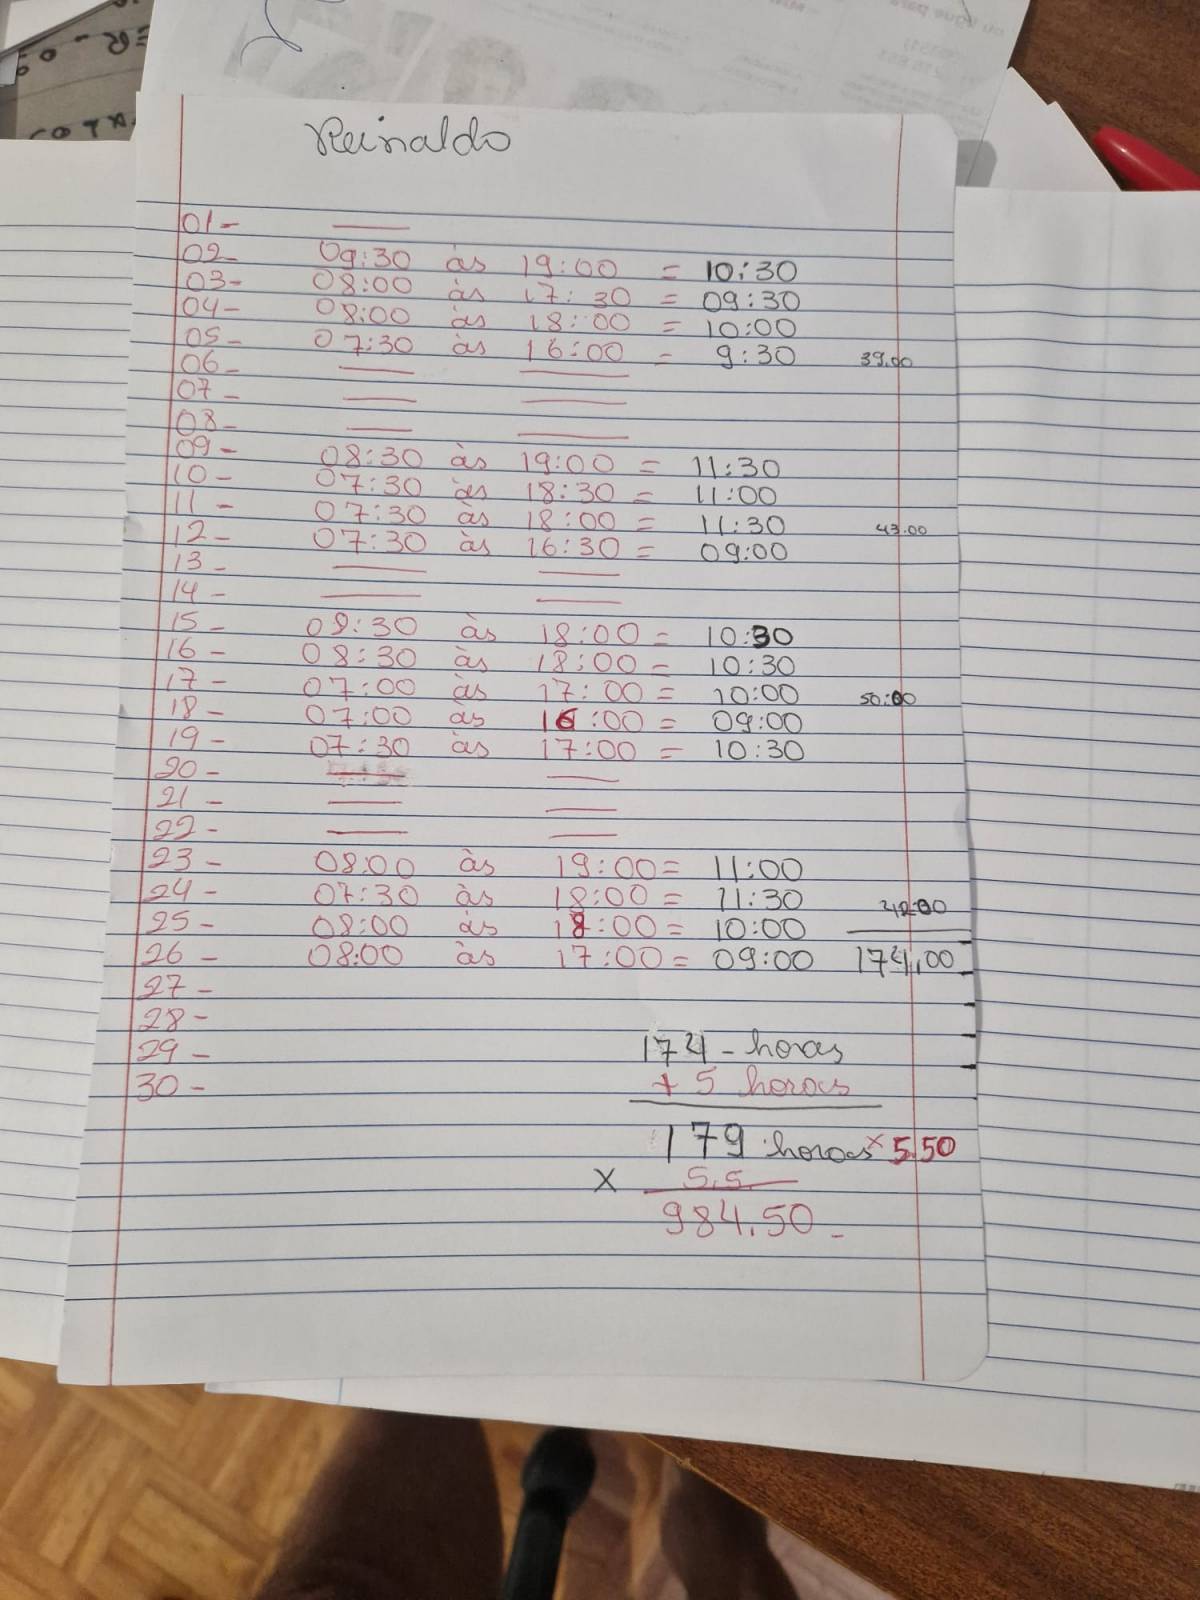 Reinaldo
01-
02- 09:30 às 19:00 = 10:30
03- 08:00 às 17:30 = 09:30
04- 08:00 às 18:00 = 10:00
05- 07:30 às 16:00 = 9:30 39.00
06-
07-
08-
09- 08:30 às 19:00 = 11:30
10- 07:30 às 18:30 = 11:00
11- 07:30 às 18:00 = 11:30 43.00
12- 07:30 às 16:30 = 09:00
13-
14-
15- 08:30 às 18:00 = 10:30
16- 08:30 às 18:00 = 10:30
17- 07:00 às 17:00 = 10:00 50:00
18- 07:00 às 16:00 = 09:00
19- 07:30 às 17:00 = 10:30
20-
21-
22-
23- 08:00 às 19:00 = 11:00
24- 07:30 às 18:00 = 11:30
25- 08:00 às 18:00 = 10:00
26- 08:00 às 17:00 = 09:00 174,00
27-
28-
29-
30-
174 - horas
+ 5 horas
179 horas x 5.50
x 5.5
984.50